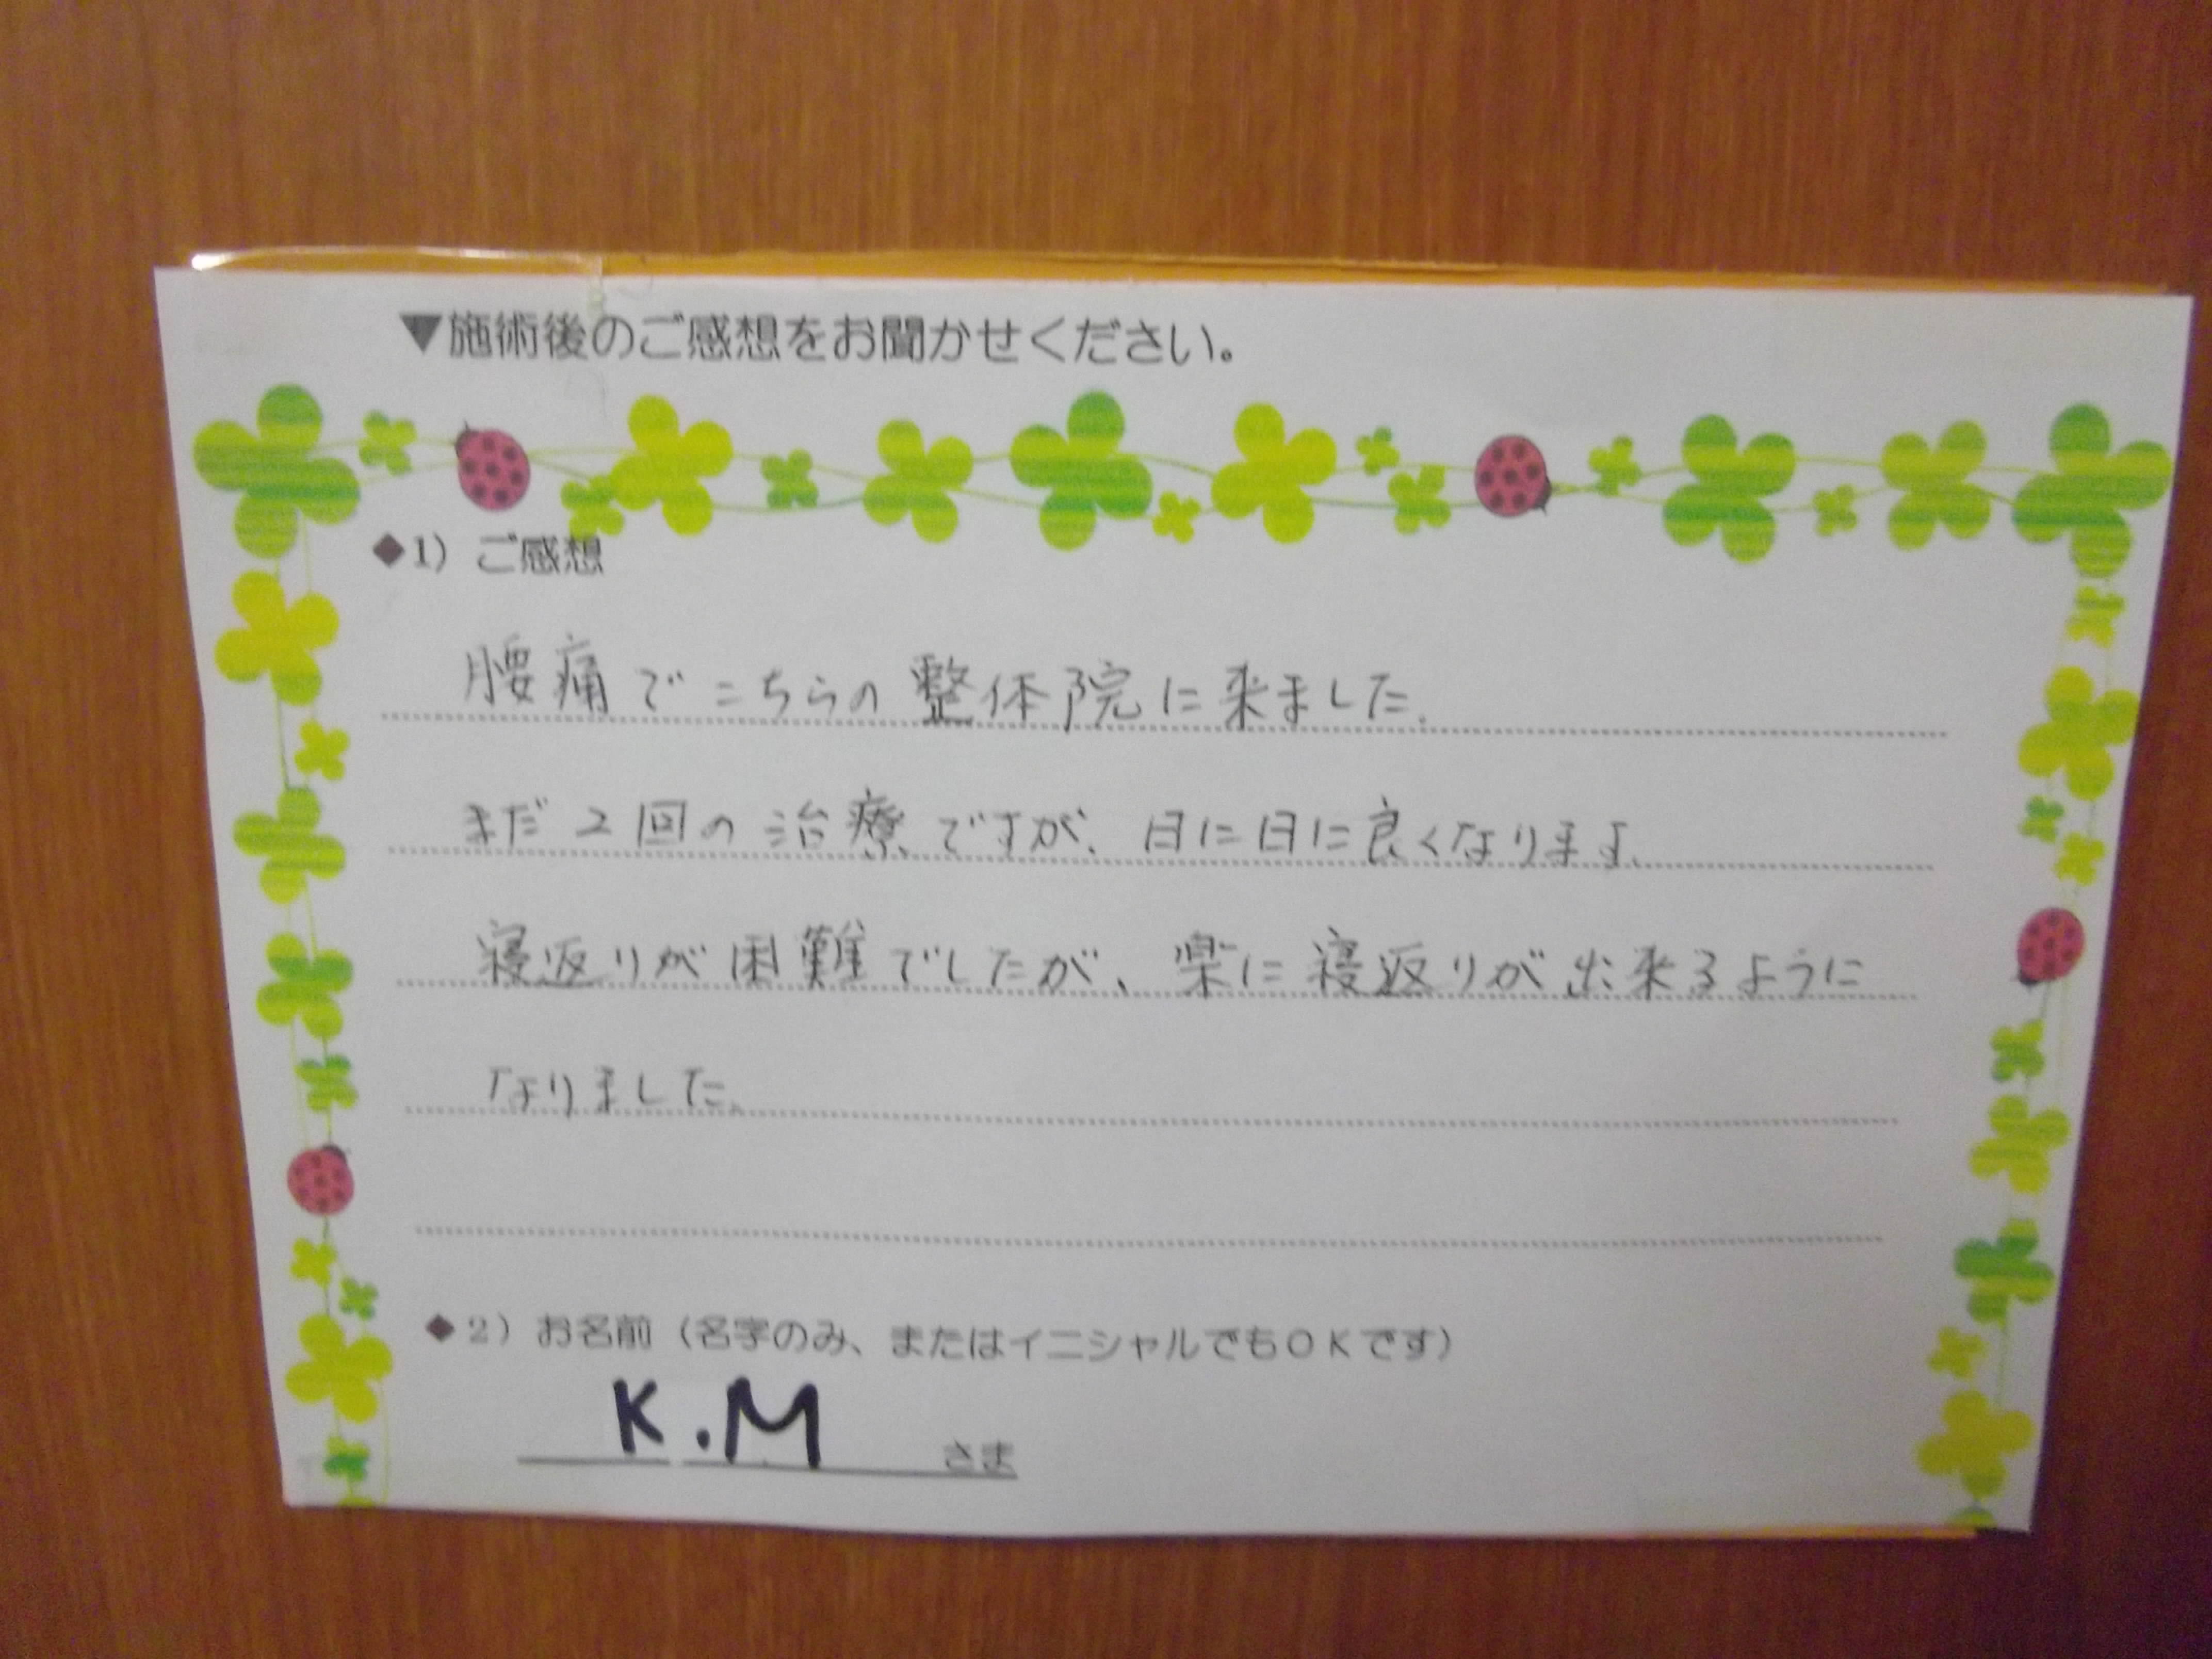 ▼施術後のご感想をお聞かせください。
◆1) ご感想
腰痛でこちらの整体院に来ました.
まだ2回の治療ですが、日に日に良くなります.
寝返りが困難でしたが、楽に寝返りが出来るように
なりました.
◆2) お名前(名字のみ、またはイニシャルでもOKです)
K.M さま